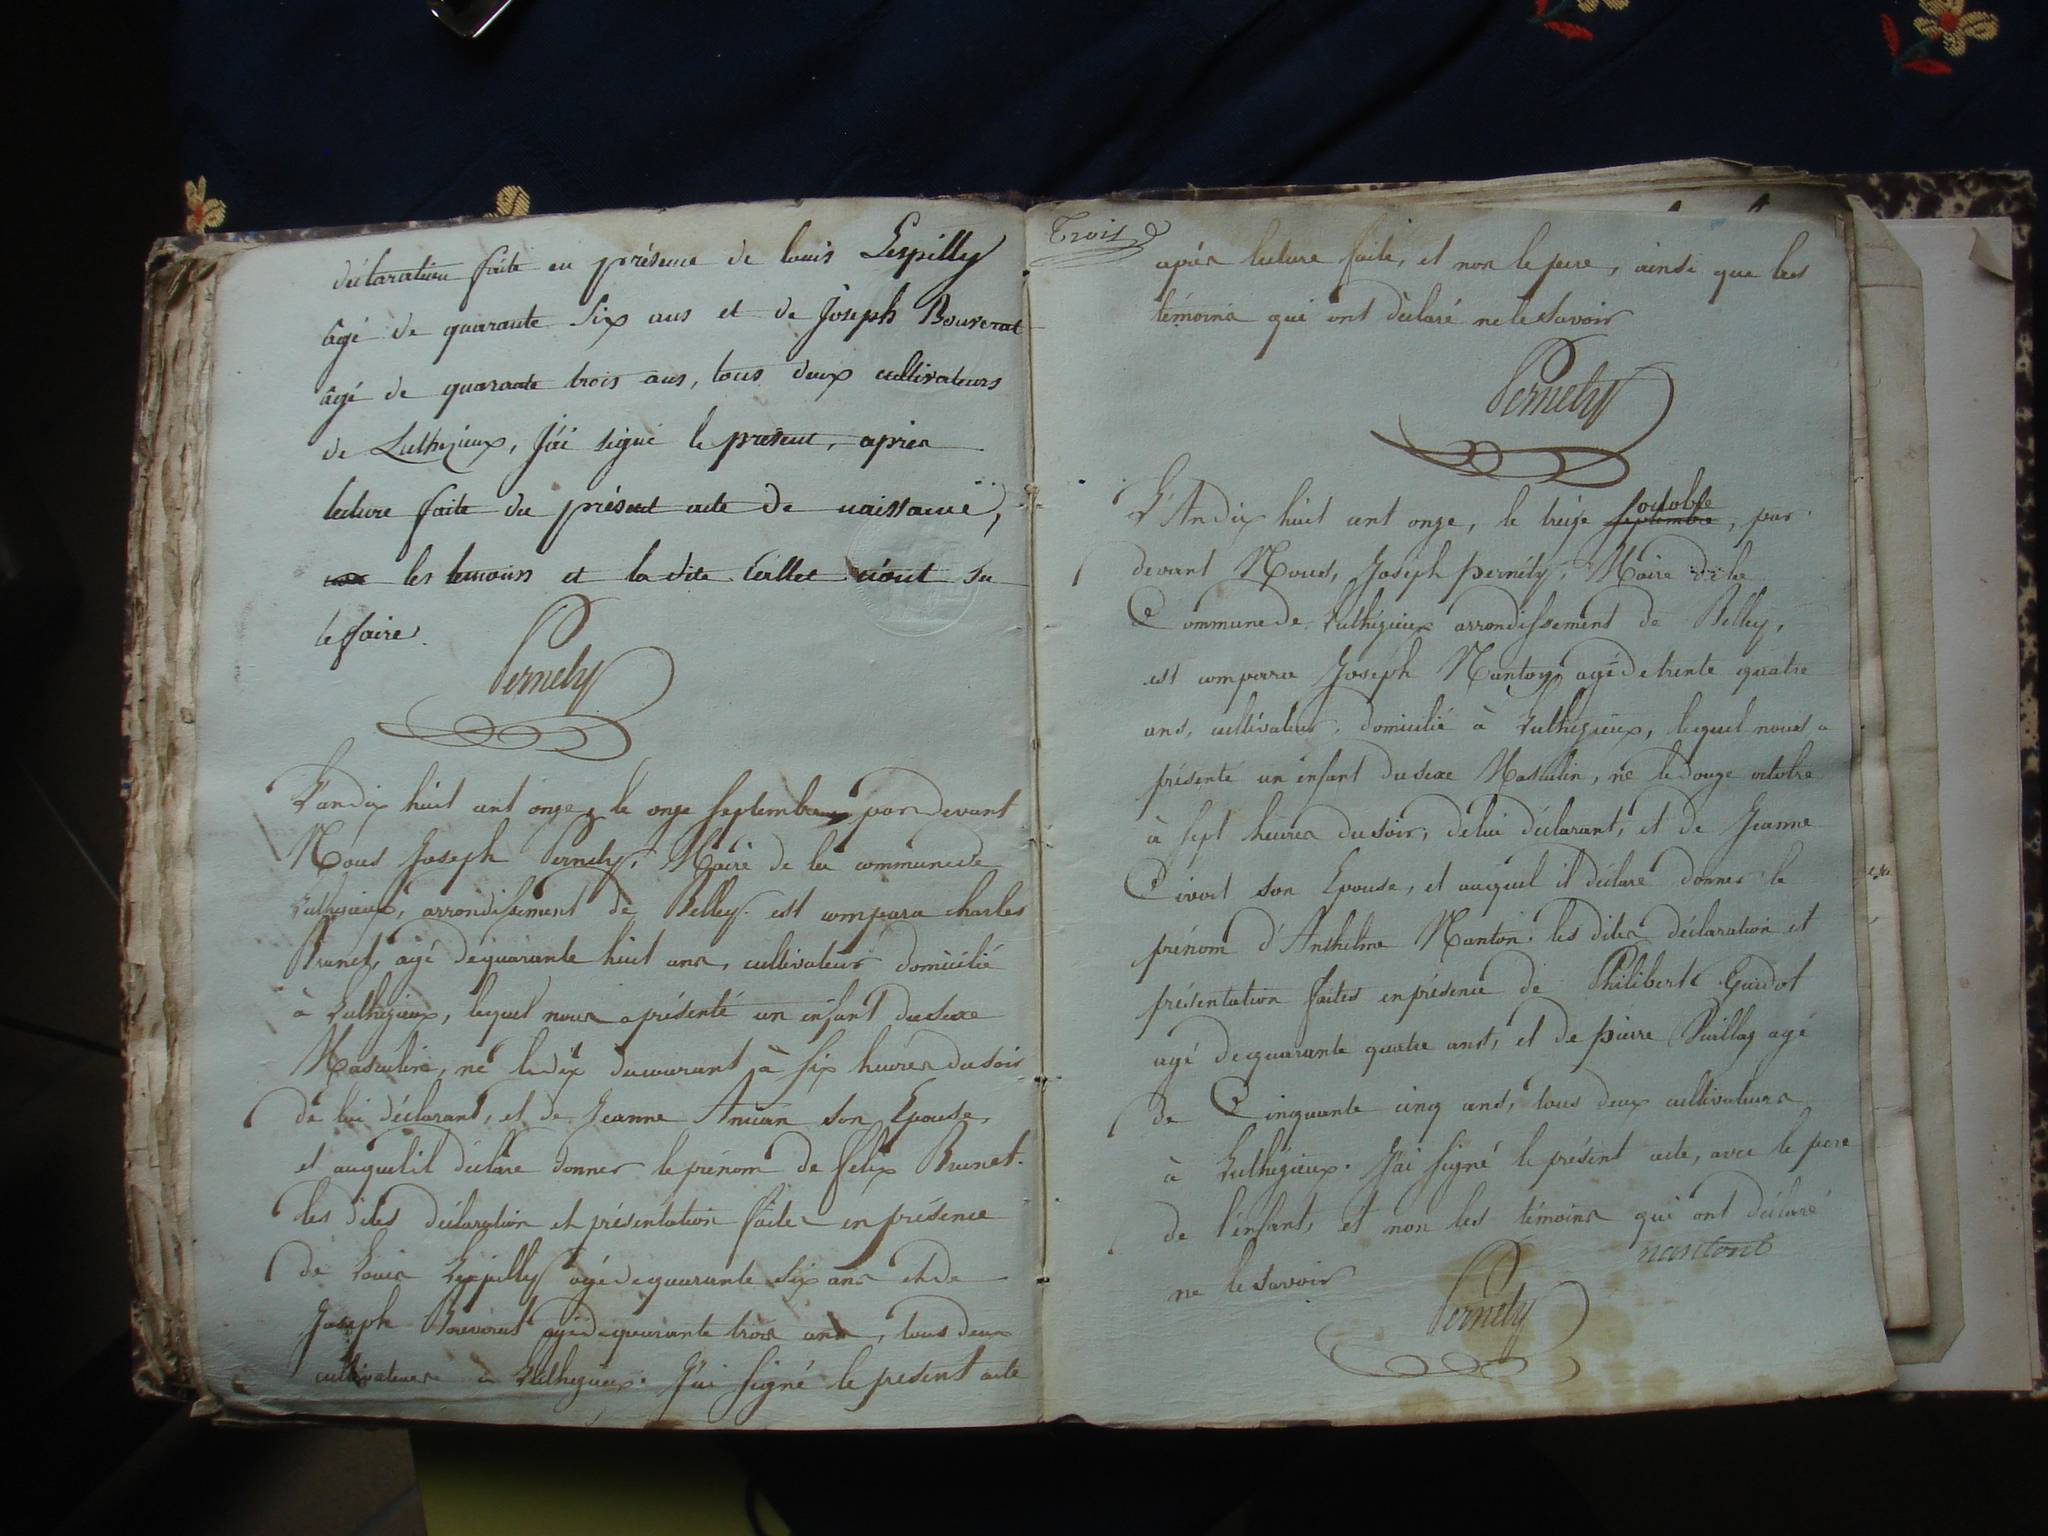 déclaration faite en présence de louis Lespilly
âgé de quarante Six ans et de Joseph Bouverat
âgé de quarante trois ans, tous deux cultivateurs
de Luthézieux, J'ai signé le présent, après
lecture faite du présent acte de naissance,
les temoins et la dite Callet n'ont su
le faire.
Pernety
L'an dix huit cent onze, le onze septembre par devant
Nous Joseph Pernety, Maire de la commune de
Luthezieux, arrondissement de Belley. est comparu charles
Brunet, agé de quarante huit ans, cultivateur domicilié
à Luthezieux, lequel nous a présenté un enfant du sexe
Masculin, né le dix du courant à six heures du soir
de lui déclarant, et de Jeanne son Epouse,
et auquel il déclare donner le prénom de felix Brunet.
les dites déclaration et présentation faites en présence
de Louis Lespilly agé de quarante six ans et de
Joseph Bouverat agé de quarante trois ans, tous deux
cultivateurs à Luthezieux. J'ai signé le présent acte
Trois
après lecture faite, et non le pere, ainsi que les
témoins qui ont déclaré ne le savoir
Pernety
L'An dix huit cent onze, le treize septembre octobre, par
devant Nous, Joseph pernéty, Maire de la
Commune de Luthézieux arrondissement de Belley,
est comparu Joseph Nanton agé de trente quatre
ans, cultivateur, domicilié à Luthezieux, lequel nous a
présenté un enfant du sexe Masculin, né le douze octobre
à sept heures du soir, de lui déclarant, et de Jeanne
son Epouse, et auquel il déclare donner le
prénom d'Anthelme Nanton. les dites déclaration et
présentation faites en présence de Philibert Guidot
agé de quarante quatre ans, et de pierre agé
de Cinquante cinq ans, tous deux cultivateurs
à Luthézieux. J'ai signé le présent acte, avec le pere
de l'enfant, et non les témoins qui ont déclaré
ne le savoir
nantont
Pernety